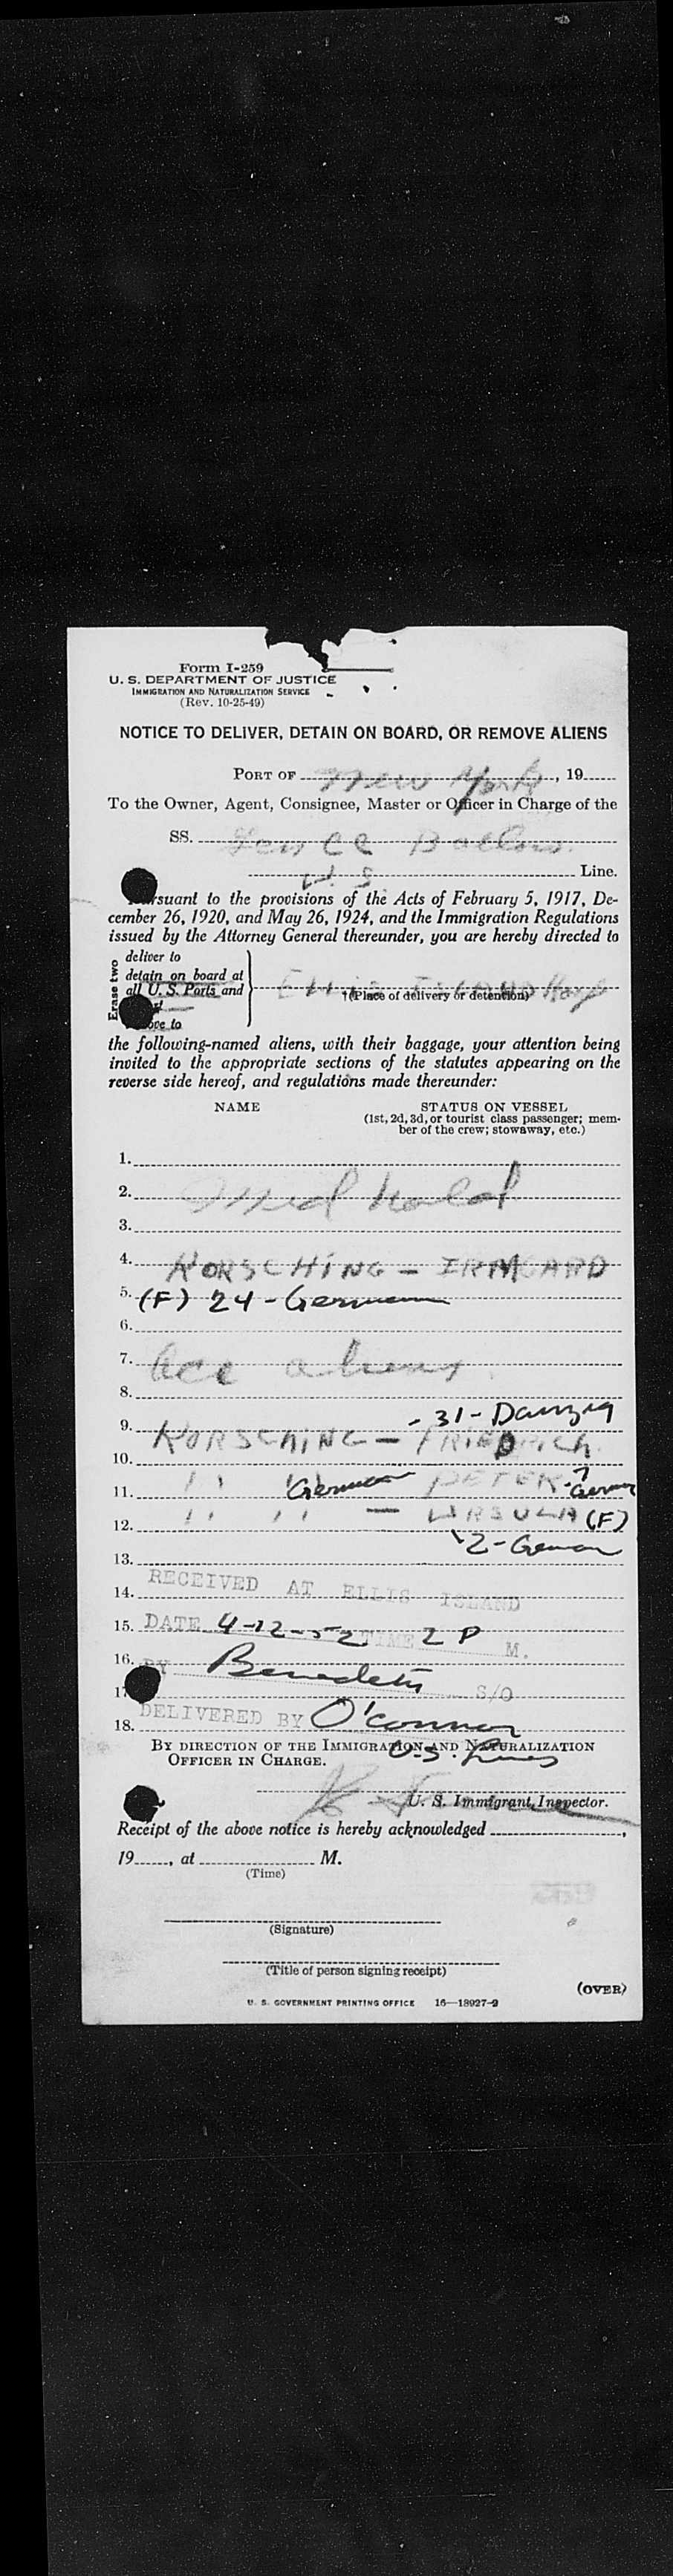 Form I-259
U. S. DEPARTMENT OF JUSTICE
IMMIGRATION AND NATURALIZATION SERVICE
(Rev. 10-25-49)
NOTICE TO DELIVER, DETAIN ON BOARD, OR REMOVE ALIENS
PORT OF New York, 19
To the Owner, Agent, Consignee, Master or Officer in Charge of the
SS. Gen CC Ballou
U.S Line.
Pursuant to the provisions of the Acts of February 5, 1917, De-
cember 26, 1920, and May 26, 1924, and the Immigration Regulations
issued by the Attorney General thereunder, you are hereby directed to
Erase two
deliver to
detain on board at
all U.S. Ports and
Ellis Island Hosp
†(Place of delivery or detention)
to
the following-named aliens, with their baggage, your attention being
invited to the appropriate sections of the statutes appearing on the
reverse side hereof, and regulations made thereunder:
NAME STATUS ON VESSEL
(1st, 2d, 3d, or tourist class passenger; mem-
ber of the crew; stowaway, etc.)
1.
2. Med hold
3.
4. KORSCHING - IRMGARD
5. (F) 24 - German
6.
7. Acc aliens
8.
9. - 31 - Danzig
KORSCHING - FRIEDRICH
10.
11. " " German PETER - 7 German
12. " " - URSULA (F)
2 - German
13.
14. RECEIVED AT ELLIS ISLAND
15. DATE 4-12-52 TIME 2 P M.
16. BY Benedetti S/O
17
18. DELIVERED BY O'Connor
U.S. Lines
BY DIRECTION OF THE IMMIGRATION AND NATURALIZATION
OFFICER IN CHARGE.
U. S. Immigrant Inspector.
Receipt of the above notice is hereby acknowledged ,
19, at M.
(Time)
(Signature)
(Title of person signing receipt)
(OVER)
U. S. GOVERNMENT PRINTING OFFICE 16—18927-2